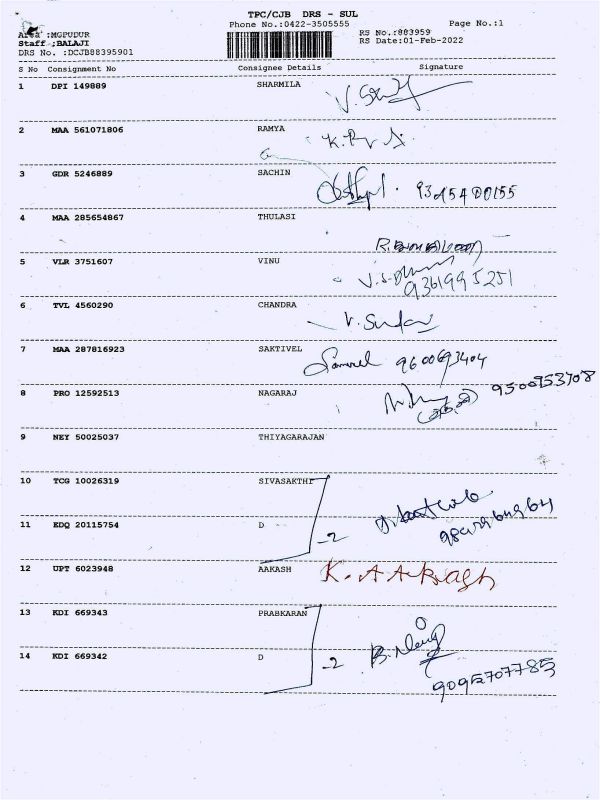 TPC/CJB DRS - SUL
Phone No.:0422-3505555
Page No.:1
Area :MGPUDUR
RS No.:883959
Staff :BALAJI
RS Date:01-Feb-2022
DRS No. :DCJB88395901
S No Consignment No Consignee Details Signature
1 DPI 149889 SHARMILA
2 MAA 561071806 RAMYA
3 GDR 5246889 SACHIN
9345400155
4 MAA 285654867 THULASI
5 VLR 3751607 VINU
9361995251
6 TVL 4560290 CHANDRA
7 MAA 287816923 SAKTIVEL
9600693404
8 PRO 12592513 NAGARAJ
9500953708
9 NEY 50025037 THIYAGARAJAN
10 TCG 10026319 SIVASAKTHI
11 EDQ 20115754 D
-2
12 UPT 6023948 AAKASH K. AAKash
13 KDI 669343 PRABKARAN
14 KDI 669342 D
-2
9095707785